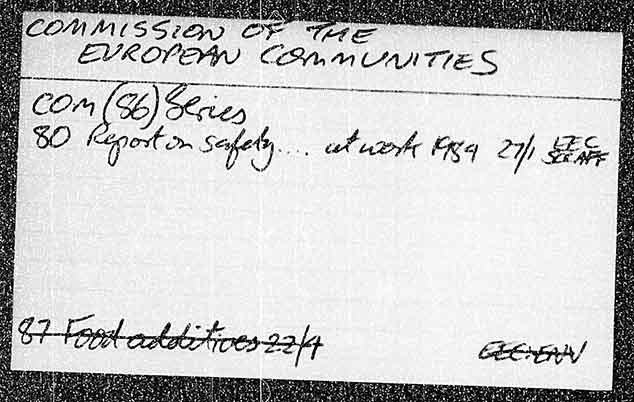 COMMISSION OF THE
EUROPEAN COMMUNITIES
COM (86) Series
80 Report on safety.... at work 1984 27/1 EEC
SOC AFF
87 Food additives 22/4 EEC ENV